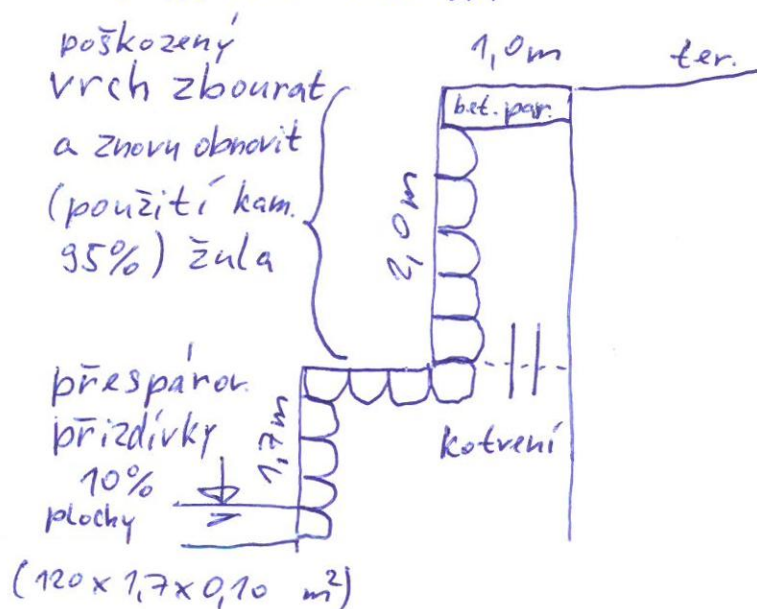 poškozený
vrch zbourat
a znovu obnovit
(použití kam.
95%) žula
1,0m
ter.
bet. par.
2,0m
přespárov.
přizdívky
10%
plochy
1,7m
kotvení
(120 x 1,7 x 0,10 m²)